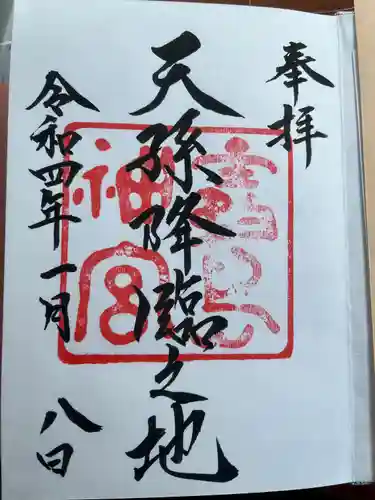 奉拝
天孫降臨之地
霧島
神宮
令和四年一月八日